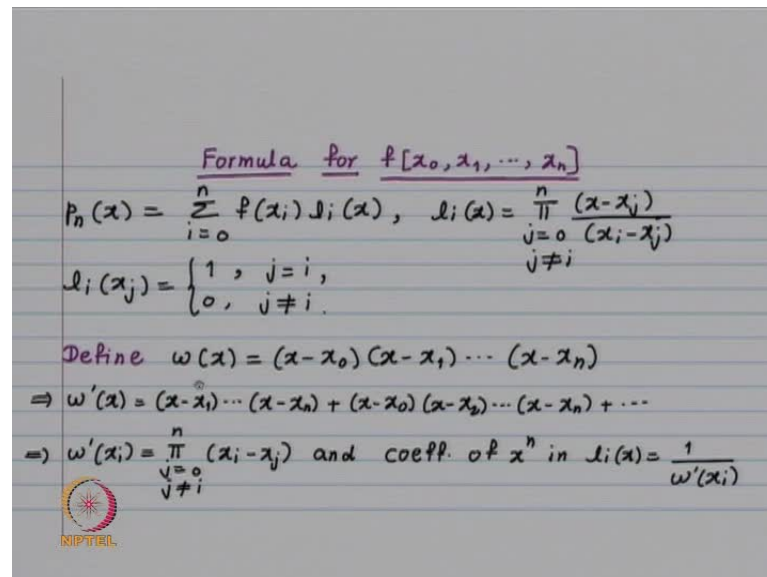 Formula for f[x₀, x₁, ⋯, xₙ]
pₙ(x) = Σ_{i=0}^{n} f(xᵢ) lᵢ(x), lᵢ(x) = π_{j=0, j≠i}^{n} (x-xⱼ)/(xᵢ-xⱼ)
lᵢ(xⱼ) = { 1, j=i,
0, j≠i.
Define ω(x) = (x-x₀)(x-x₁) ⋯ (x-xₙ)
⇒ ω'(x) = (x-x₁)⋯(x-xₙ) + (x-x₀)(x-x₂)⋯(x-xₙ) + ⋯
⇒ ω'(xᵢ) = π_{j=0, j≠i}^{n} (xᵢ-xⱼ) and coeff. of xⁿ in lᵢ(x) = 1/ω'(xᵢ)
NPTEL